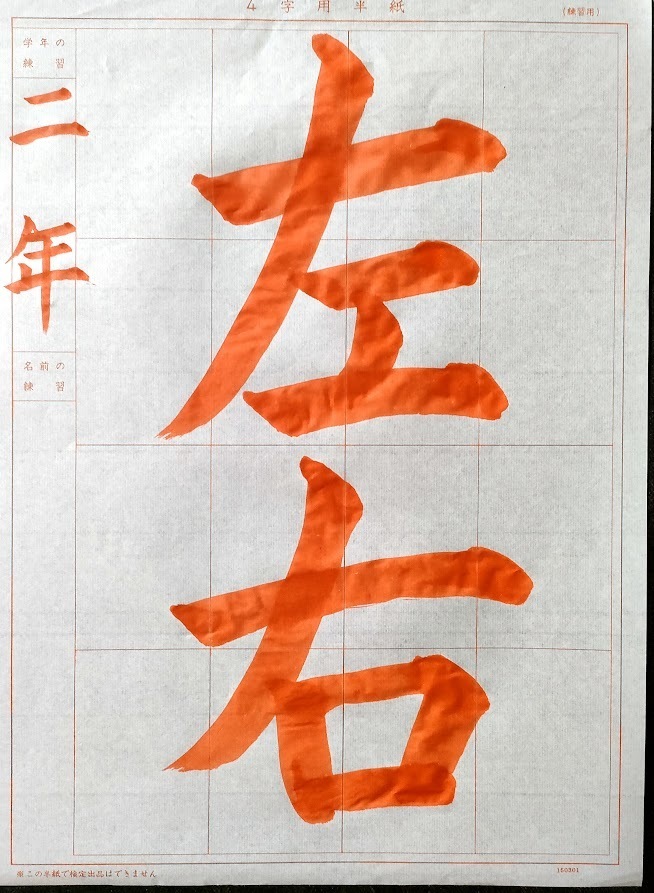 4字用半紙
(練習用)
左右
学年の
練習
二年
名前の
練習
※この半紙で検定出品はできません
150301